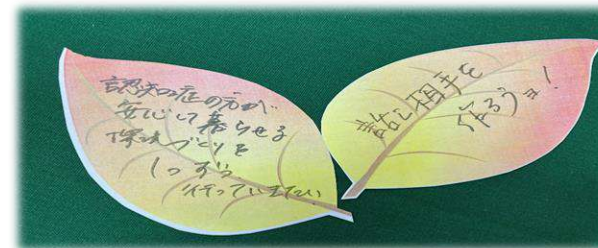 認知症の方が
安心して暮らせる
環境づくりを
1つずつ
行っていきたい
話し相手を
作ろうョ!